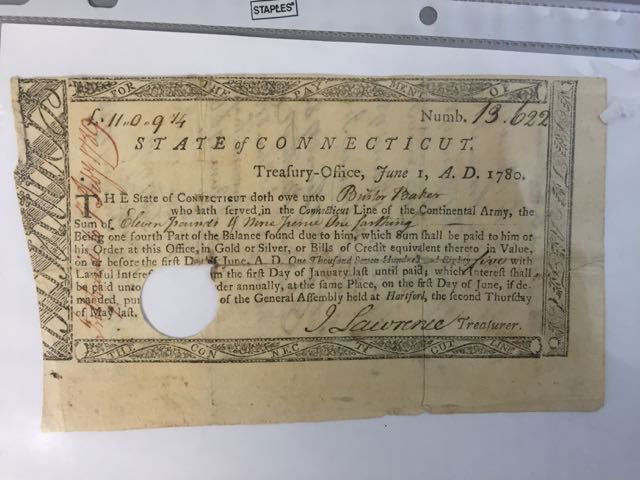 STAPLES®
FOR THE PAYMENT OF
£ 11..0..9 1/4 Numb. 13.622
STATE of CONNECTICUT.
Treasury-Office, June 1, A. D. 1780.
THE State of CONNECTICUT doth owe unto Bristor Baker
who hath served in the Connecticut Line of the Continental Army, the
Sum of Eleven pounds & Nine pence One farthing
Being one fourth Part of the Balance found due to him, which Sum shall be paid to him or
his Order at this Office, in Gold or Silver, or Bills of Credit equivalent thereto in Value,
on or before the first Day of June, A. D. One Thousand Seven Hundred and Eighty five with
Lawful Interest from the first of January last until paid; which Interest shall
be paid unto order annually, at the same Place, on the first Day of June, if de-
manded, pur of the General Assembly held at Hartford, the second Thursday
of May last.
J. Lawrence Treasurer.
THE CONNECTICUT LINE